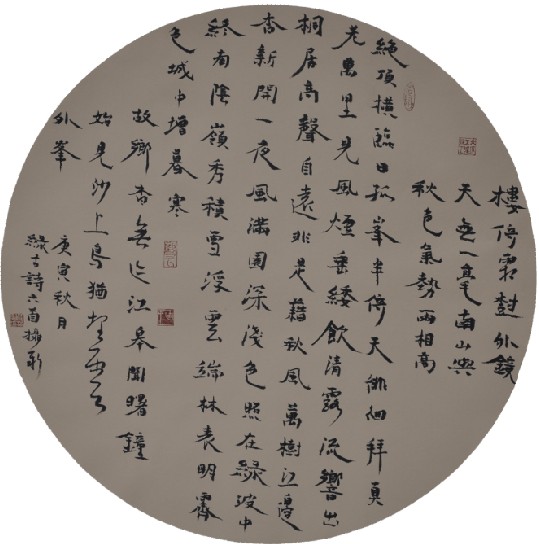 樓倚霜樹外鏡
天無一毫南山與
秋色氣勢兩相高
絕頂橫臨日孤峯半倚天徘徊拜真
老萬里見風煙垂緌飲清露流響出
桐居高聲自遠非是藉秋風萬樹江邊
杏新開一夜風滿園深淺色照在綠波中
終南陰嶺秀積雪浮雲端林表明霽
色城中增暮寒
故鄉杳無際江皋聞曙鐘
始見沙上鳥猶埋雲
外峯
庚寅秋月
錄古詩六首